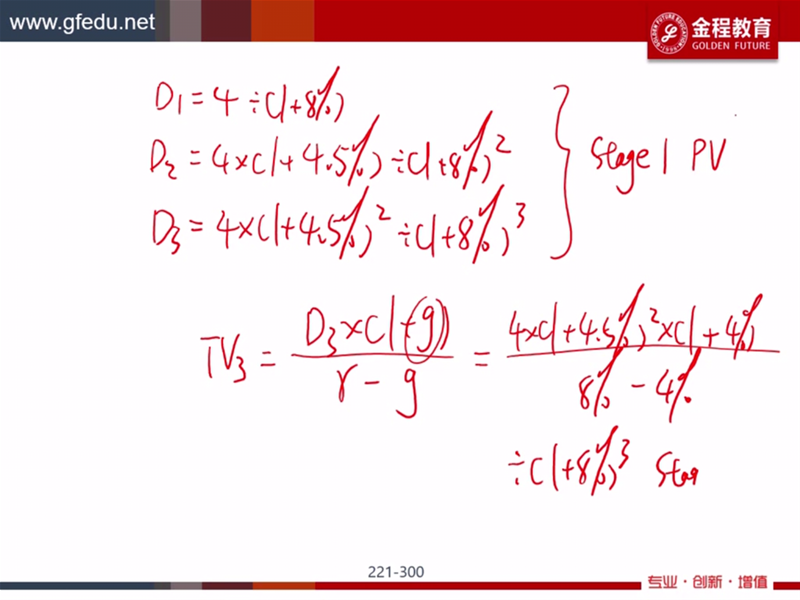 www.gfedu.net
金程教育
GOLDEN FUTURE
D1 = 4 ÷ (1+8%)
D2 = 4×(1+4.5%) ÷ (1+8%)^2
D3 = 4×(1+4.5%)^2 ÷ (1+8%)^3
Stage 1 PV
TV3 = D3×(1+g) / r-g = 4×(1+4.5%)^2×(1+4%) / 8%-4%
÷(1+8%)^3 Stag
221-300
专业·创新·增值